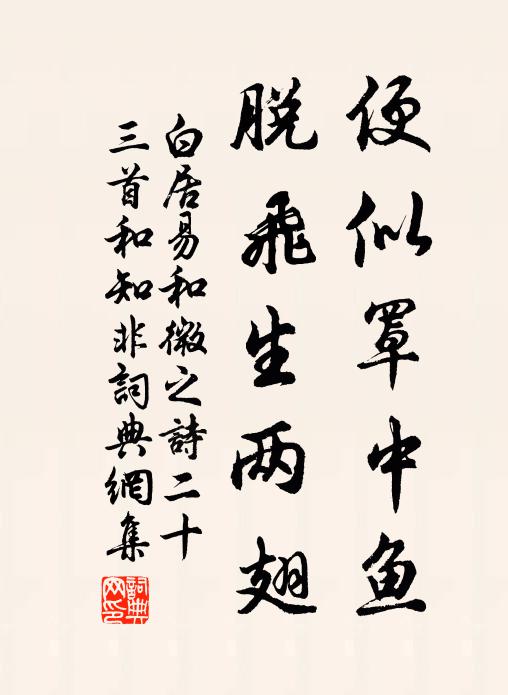 便似罩中鱼
脱飛生两翅
白居易和微之詩二十
三首和知非詞典網集
詞典网印